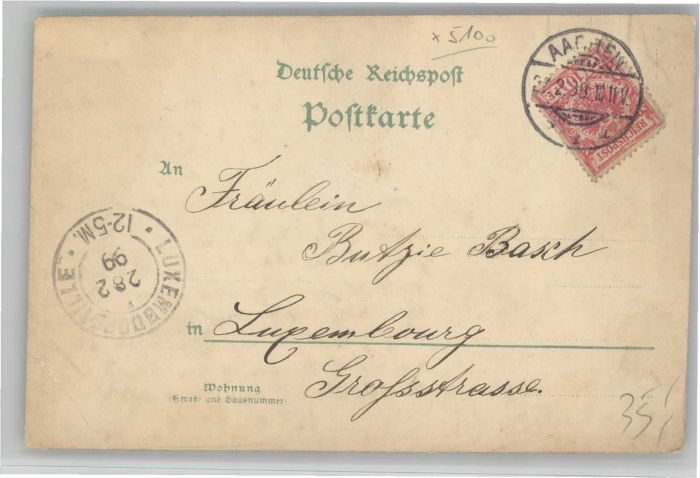 x 5100
Deutsche Reichspost
Postkarte
AACHEN
10
REICHSPOST
An
Fräulein
Butzie Basch
in Luxembourg
Grossstrasse.
Wohnung
(Straße und Hausnummer)
LUXEMBOURG-VILLE
12-5M.
28 2
99
35,